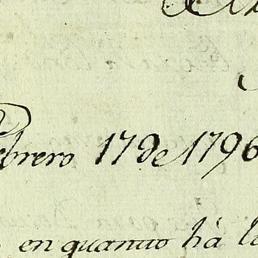 ebrero 17 de 1796
en quanto há l